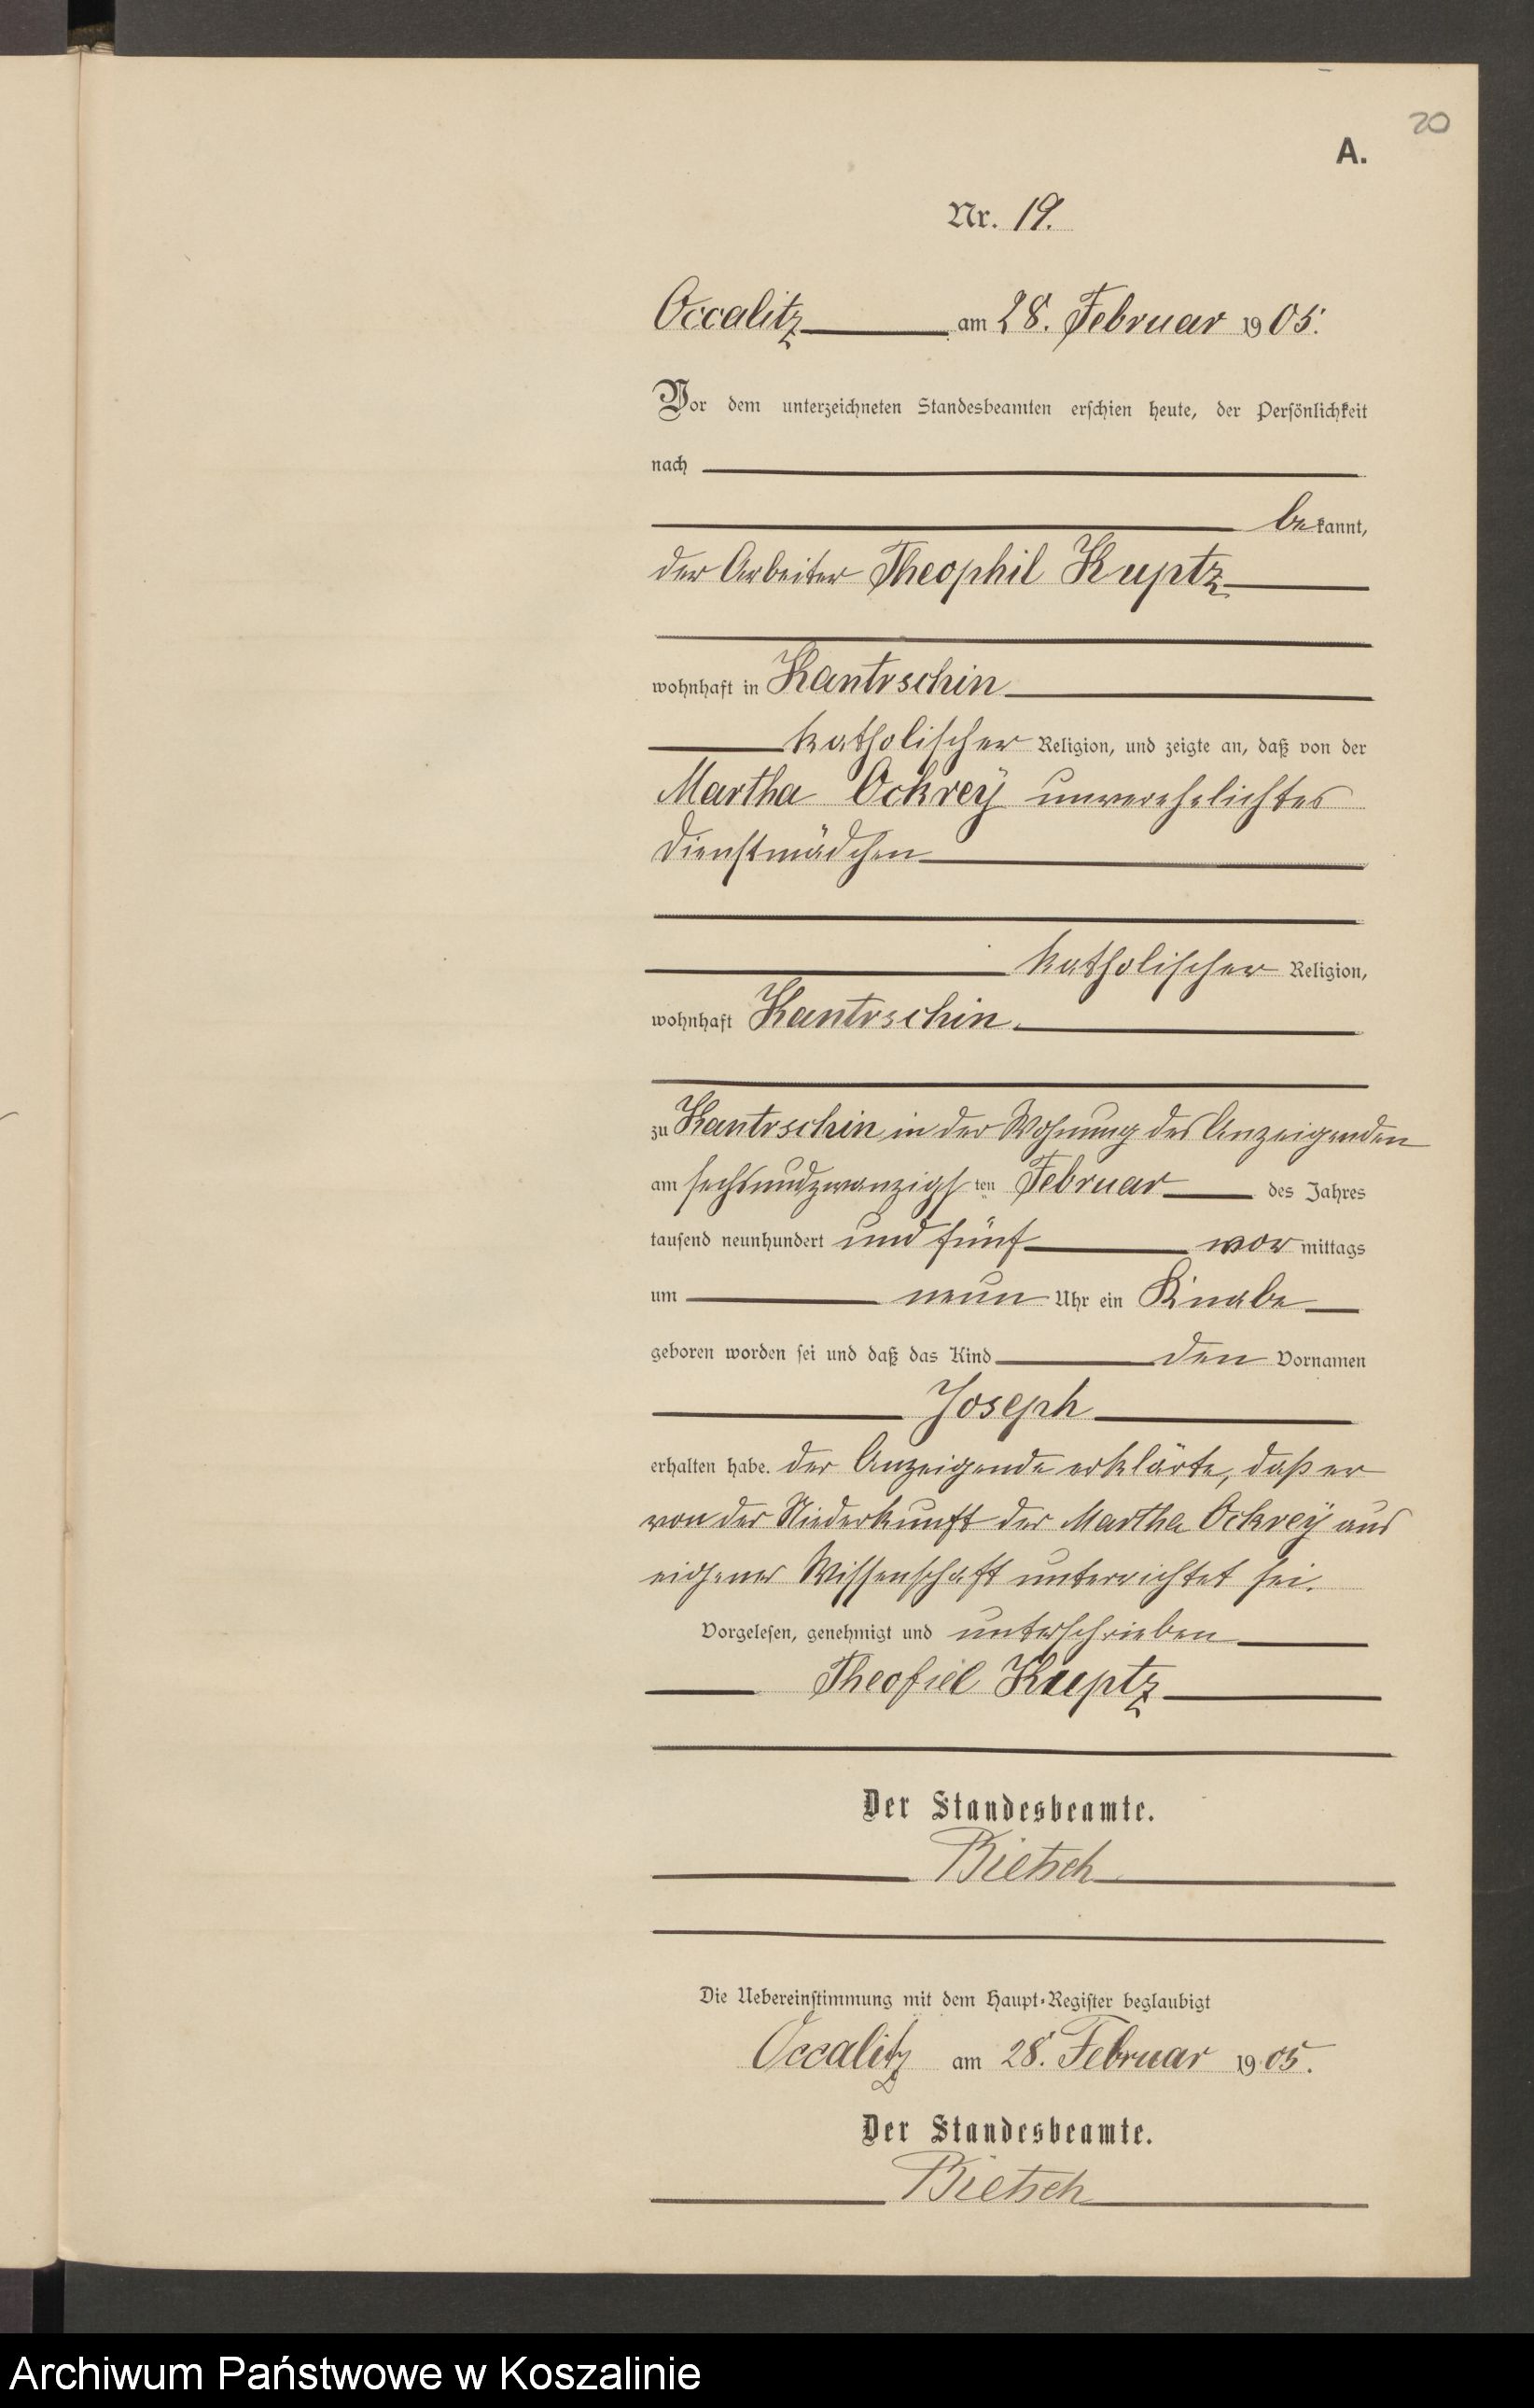 20
A.
Nr. 19.
Occalitz am 28. Februar 1905.
Vor dem unterzeichneten Standesbeamten erschien heute, der Persönlichkeit
nach
bekannt,
der Arbeiter Theophil Kuptz
wohnhaft in Kantrschin
katholischer Religion, und zeigte an, daß von der
Martha Ockrey unverehelichtes
Dienstmädchen
katholischer Religion,
wohnhaft Kantrschin
zu Kantrschin in der Wohnung des Anzeigenden
am sechsundzwanzigsten Februar des Jahres
tausend neunhundert und fünf vormittags
um neun Uhr ein Knabe
geboren worden sei und daß das Kind den Vornamen
Joseph
erhalten habe. Der Anzeigende erklärte, daß er
von der Niederkunft der Martha Ockrey aus
eigener Wissenschaft unterrichtet sei.
Vorgelesen, genehmigt und unterschrieben
Theofiel Kuptz
Der Standesbeamte.
Bietsch
Die Uebereinstimmung mit dem Haupt-Register beglaubigt
Occalitz am 28. Februar 1905.
Der Standesbeamte.
Bietsch
Archiwum Państwowe w Koszalinie